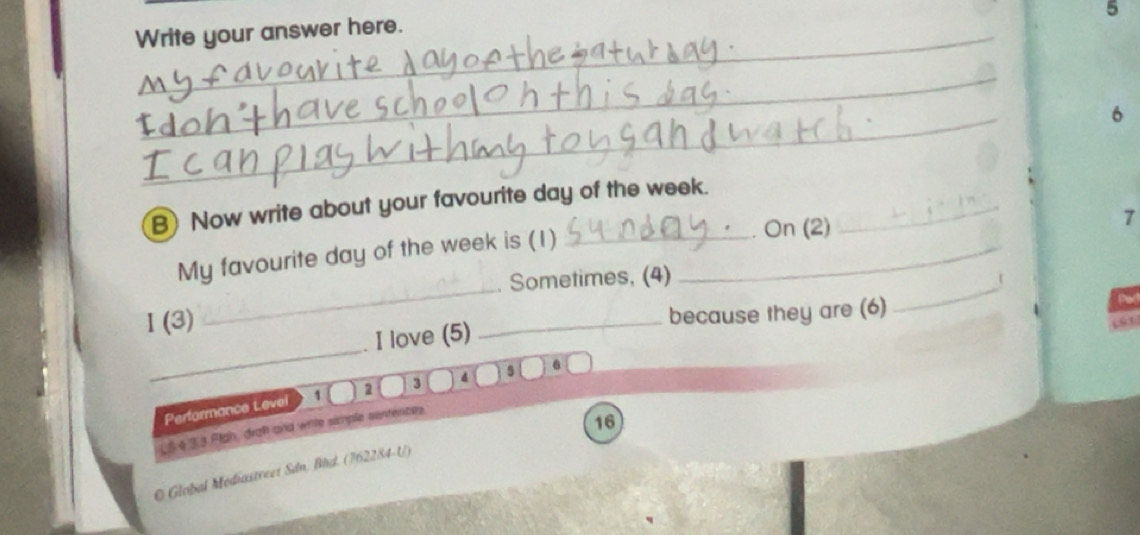 5
Write your answer here.
My favourite day of the saturday.
I don't have school on this day.
6
I can play with my toys and watch.
B Now write about your favourite day of the week.
7
My favourite day of the week is (1) sunday. . On (2)
I (3) . Sometimes, (4)
. I love (5) because they are (6)
Performance Level 1 2 3 4 5 6
LS 4.3.3 Plan, draft and write simple sentences
16
© Global Mediastreet Sdn. Bhd. (762284-U)